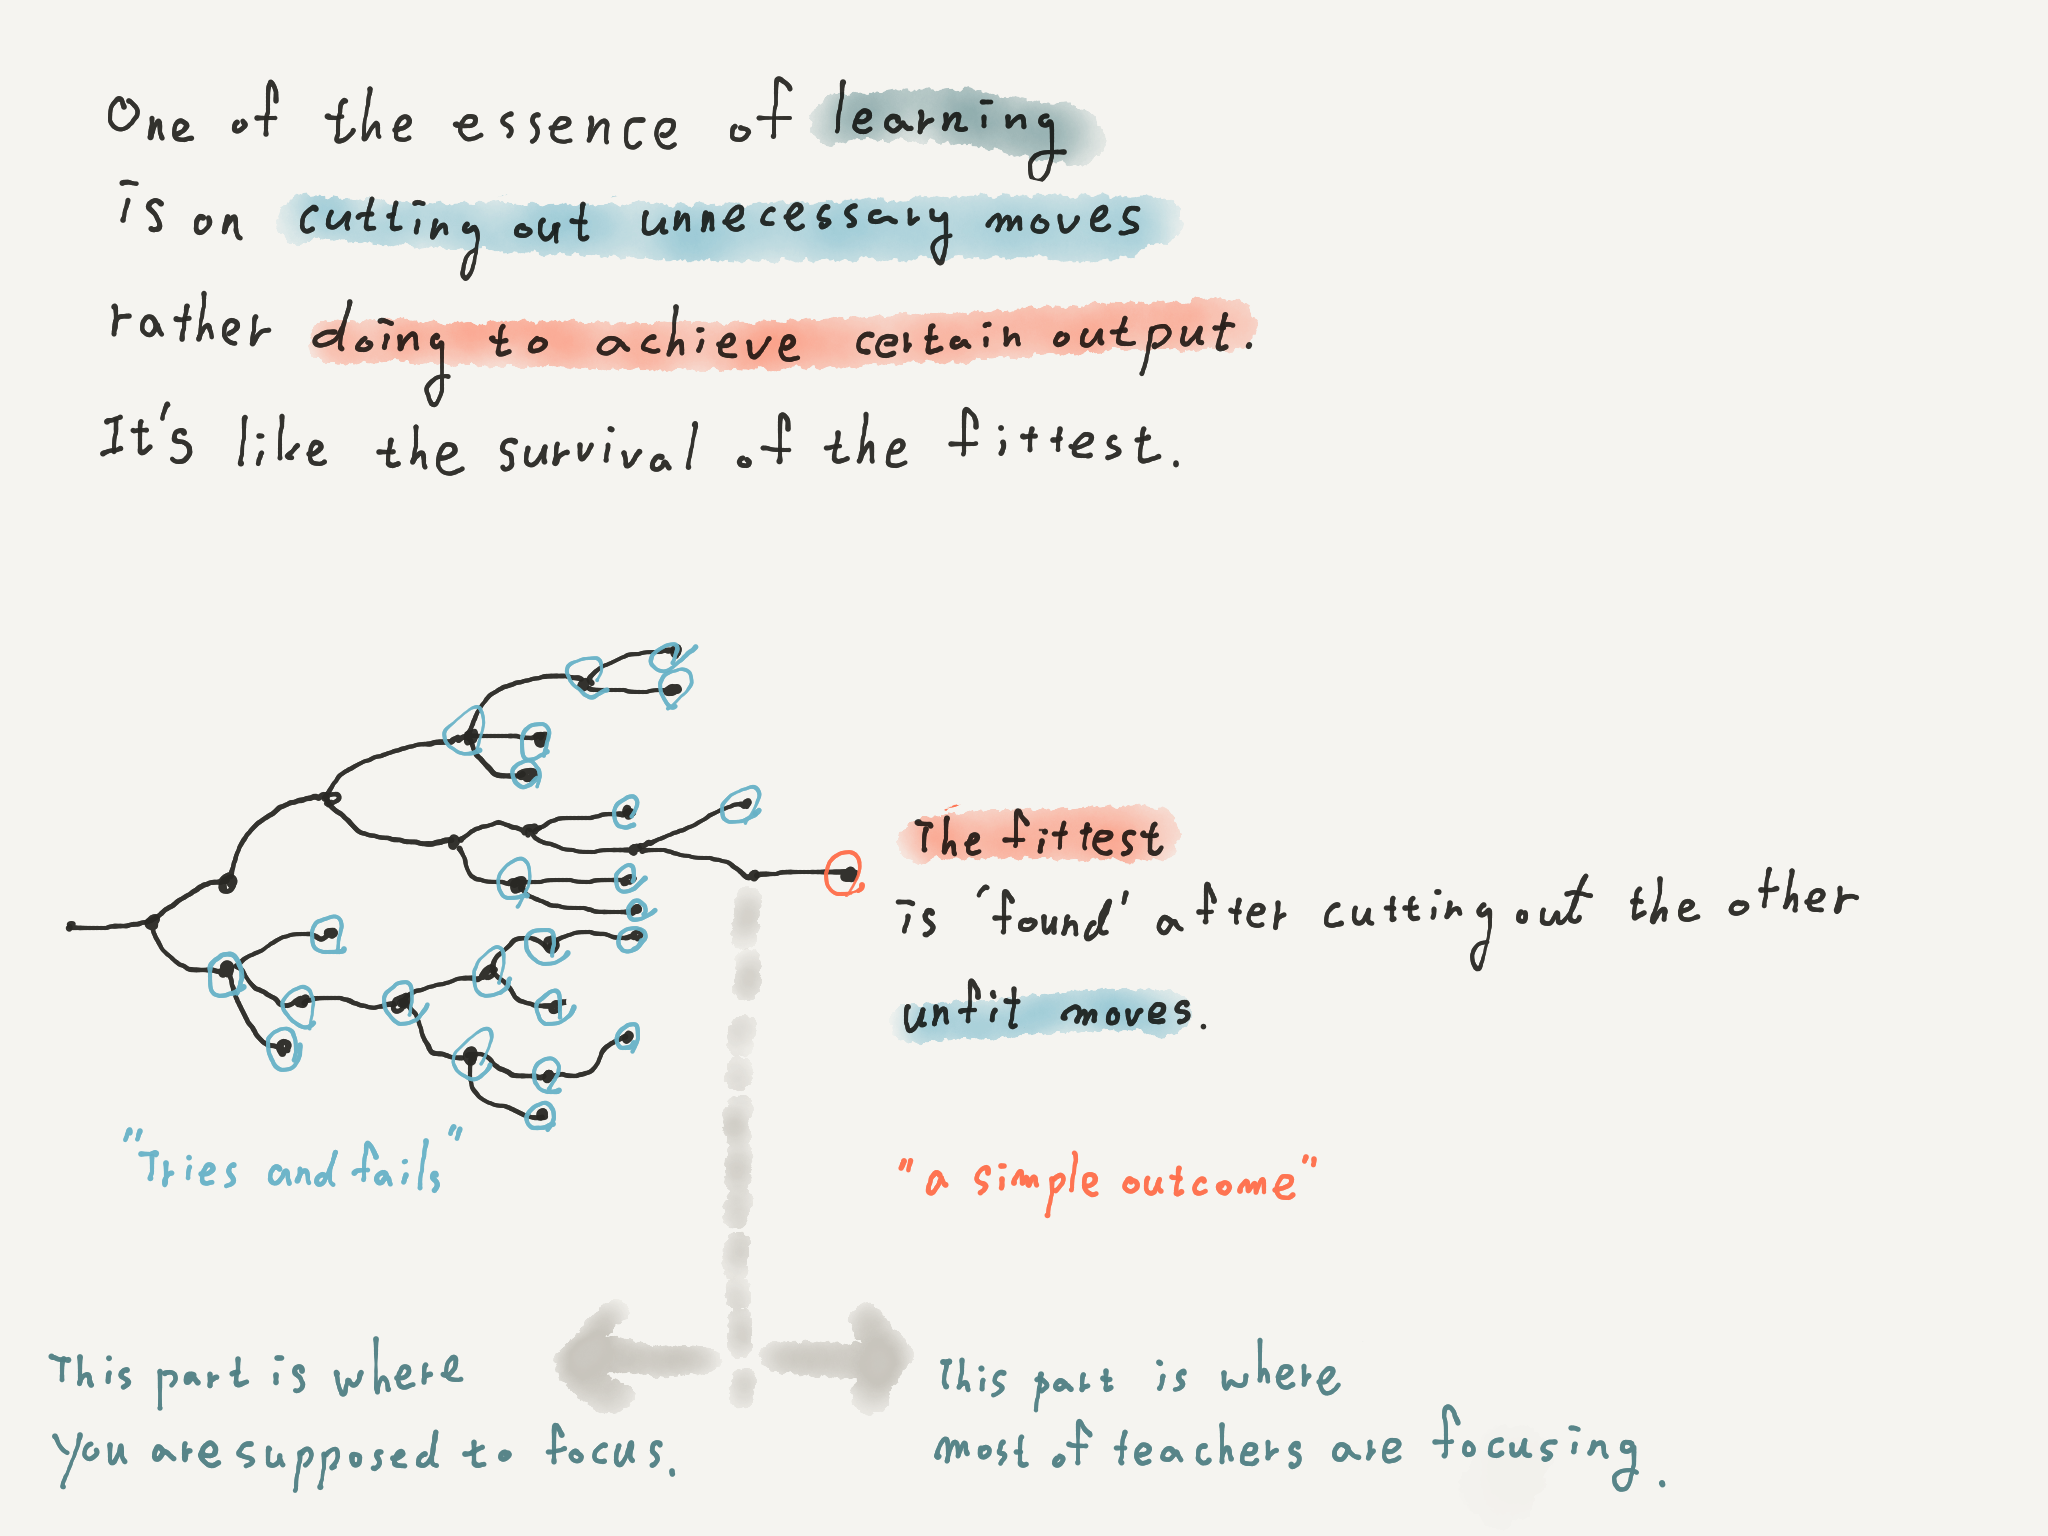 One of the essence of learning
is on cutting out unnecessary moves
rather doing to achieve certain output.
It's like the survival of the fittest.
The fittest
is 'found' after cutting out the other
unfit moves.
"Tries and fails"
"a simple outcome"
This part is where
you are supposed to focus.
This part is where
most of teachers are focusing.